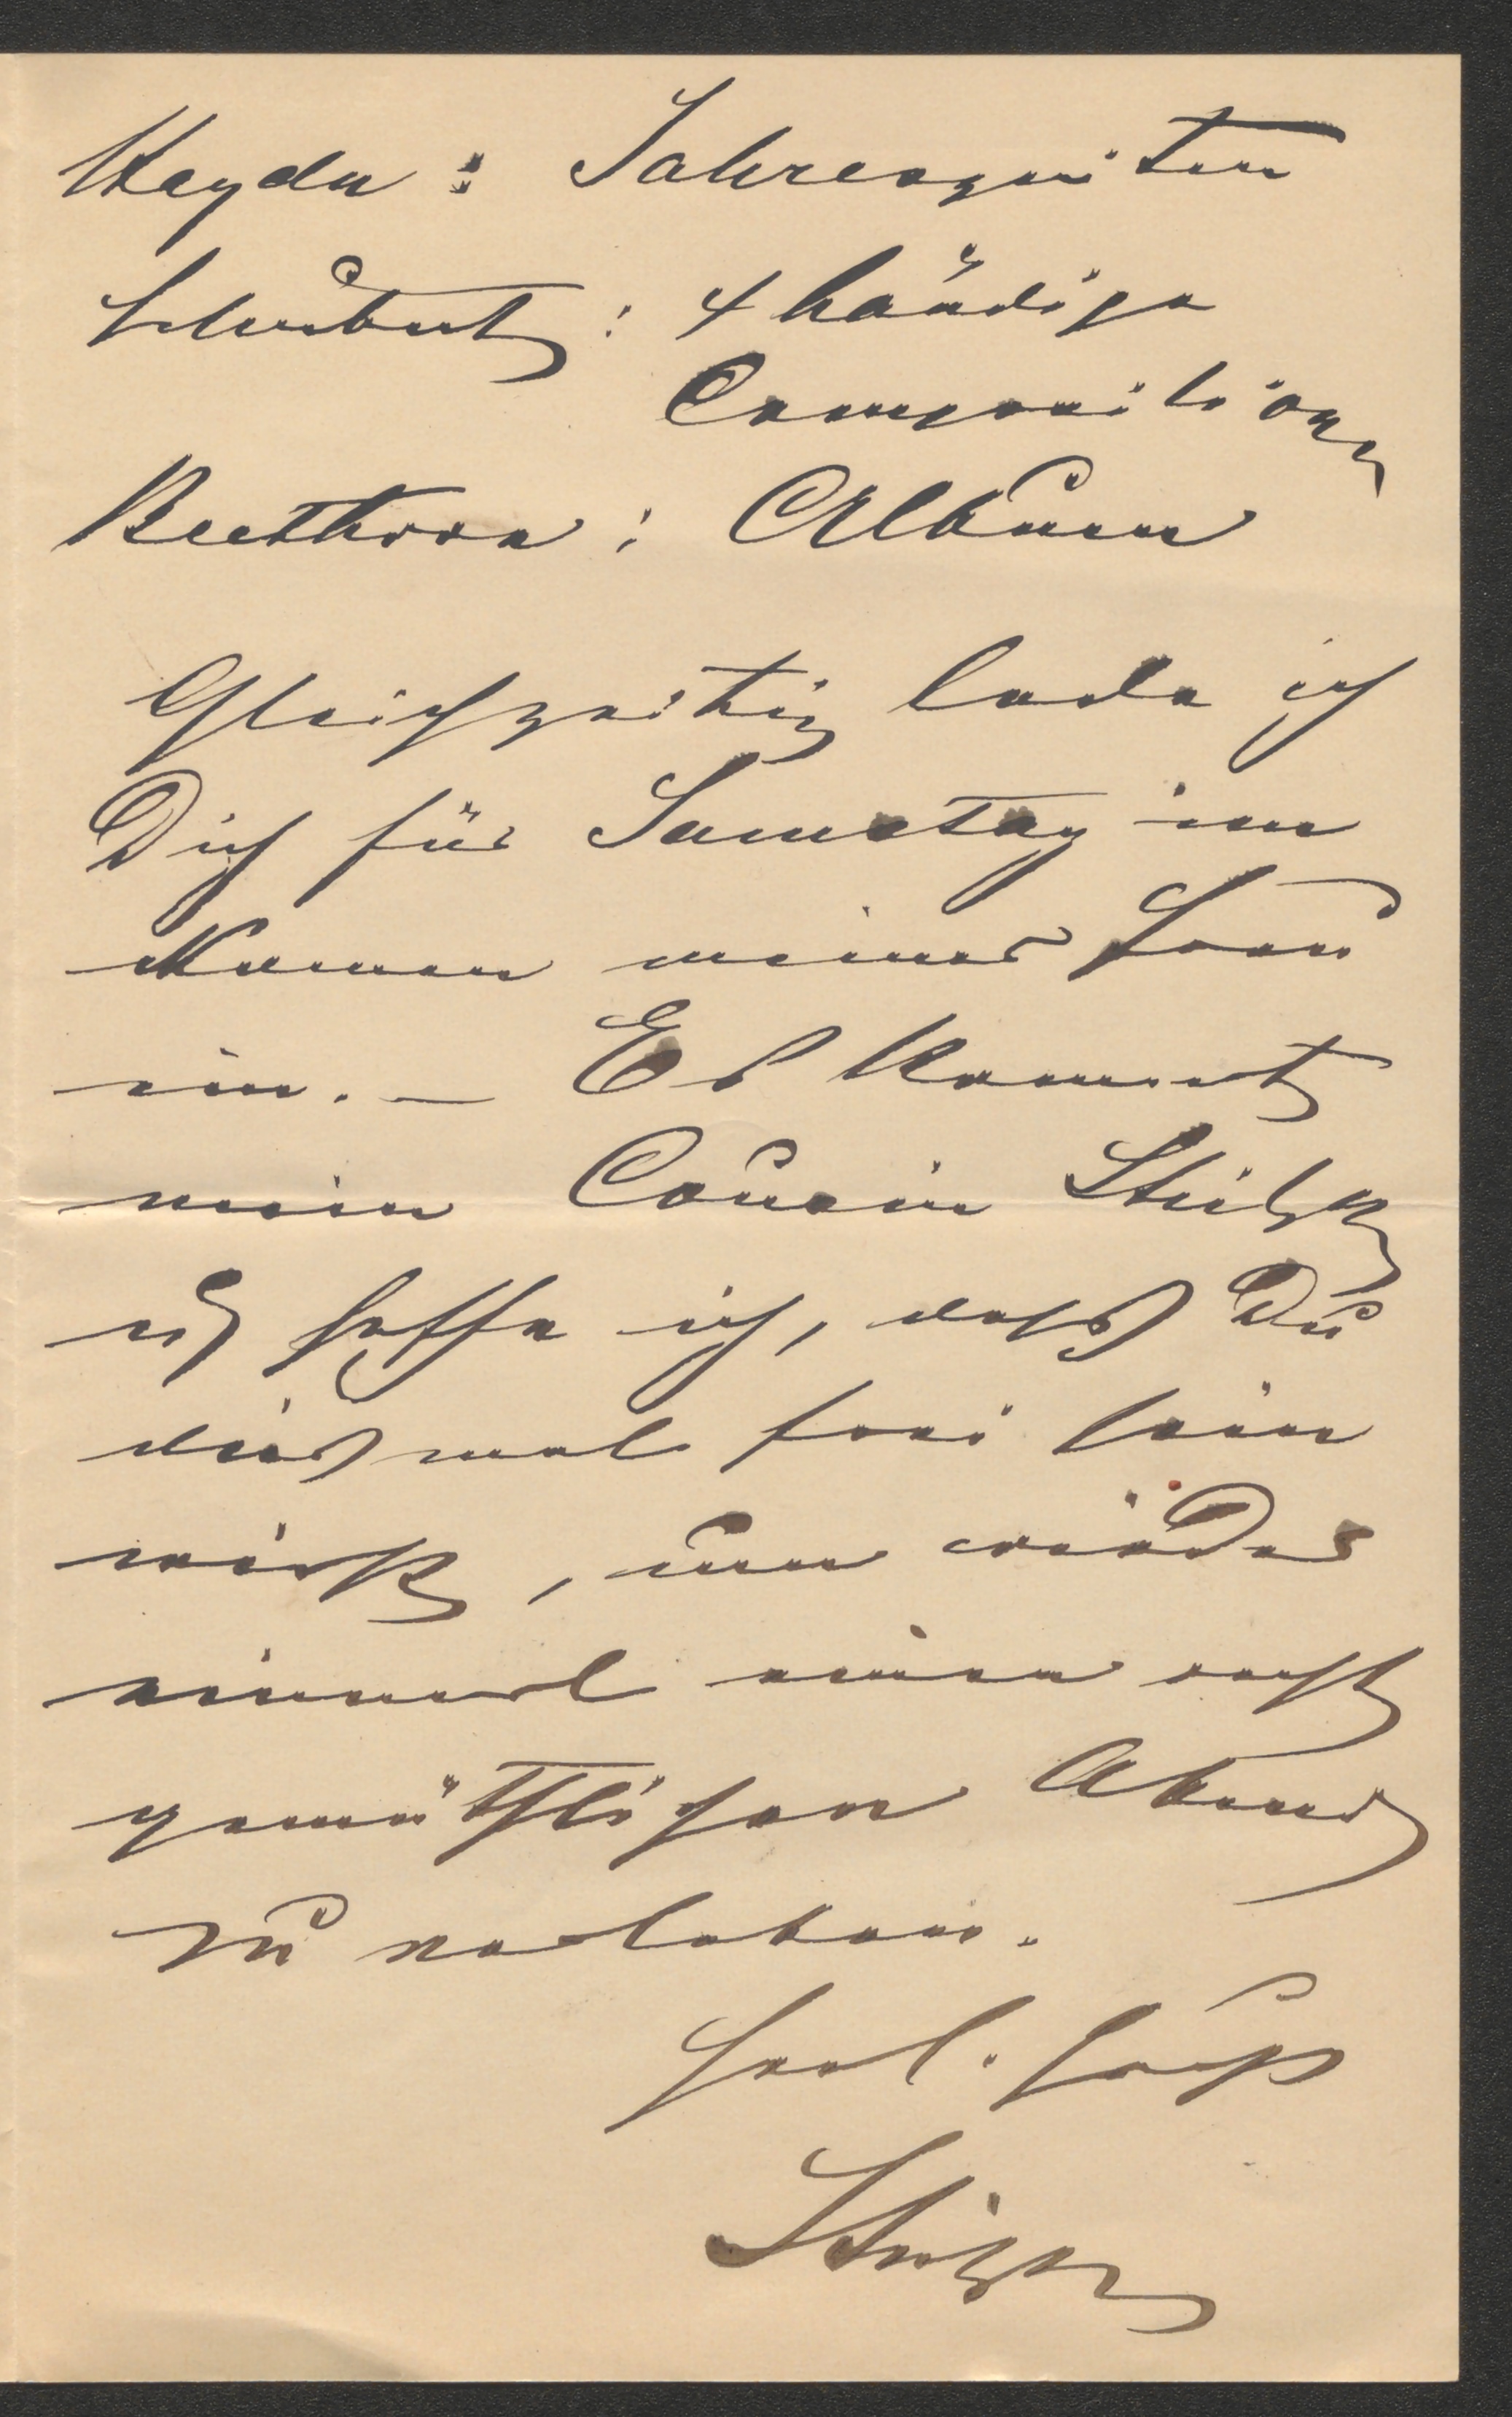 Haydn : Jahreszeiten
Schubert : 4 händige
Compositionen
Beethoven : Album
Gleichzeitig lade ich
Dich für Samstag im
Namen meiner Frau
ein. — Es kommt
mein Cousin
und hoffe ich, daß Du
diesmal frei sein
wirst, um wieder
einmal einen recht
gemüthlichen Abend
zu verleben.
Herzl. Gruß